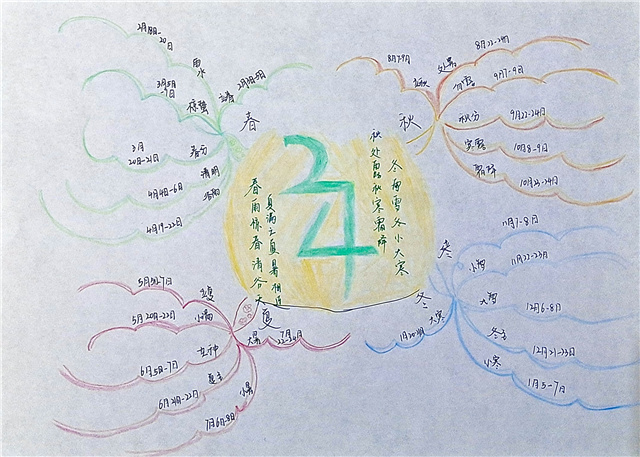 24
春
立春
2月3日-5日
雨水
2月18日-20日
惊蛰
3月5日-7日
春分
3月20日-21日
清明
4月4日-6日
谷雨
4月19-22日
夏
立夏
5月5日-7日
小满
5月20日-22日
芒种
6月5日-7日
夏至
6月21日-22日
小暑
7月6日-8日
大暑
7月22-24日
秋
立秋
8月7-9日
处暑
8月22-24日
白露
9月7-9日
秋分
9月22-24日
寒露
10月8-9日
霜降
10月23-24日
冬
冬
11月7-8日
小雪
11月22-23日
大雪
12月6-8日
冬至
12月21-23日
小寒
1月5-7日
大寒
春雨惊春清谷天
夏满芒夏暑相连
秋处露秋寒霜降
冬雪雪冬小大寒